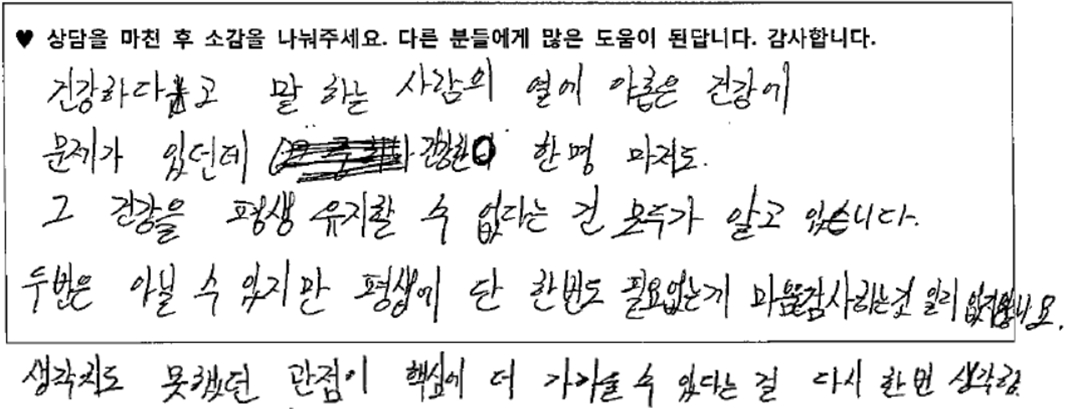 ♥ 상담을 마친 후 소감을 나눠주세요. 다른 분들에게 많은 도움이 된답니다. 감사합니다.
건강하다고 말 하는 사람의 열에 아홉은 건강에
문제가 있던데 건강한 한명 마저도.
그 건강을 평생 유지할 수 없다는 건 모두가 알고 있습니다.
두번은 아닐 수 있지만 평생에 단 한번도 필요없는게 마음감사하는것 일리 없지않나요.
생각치도 못했던 관점이 핵심에 더 가까울 수 있다는 걸 다시 한번 생각함.